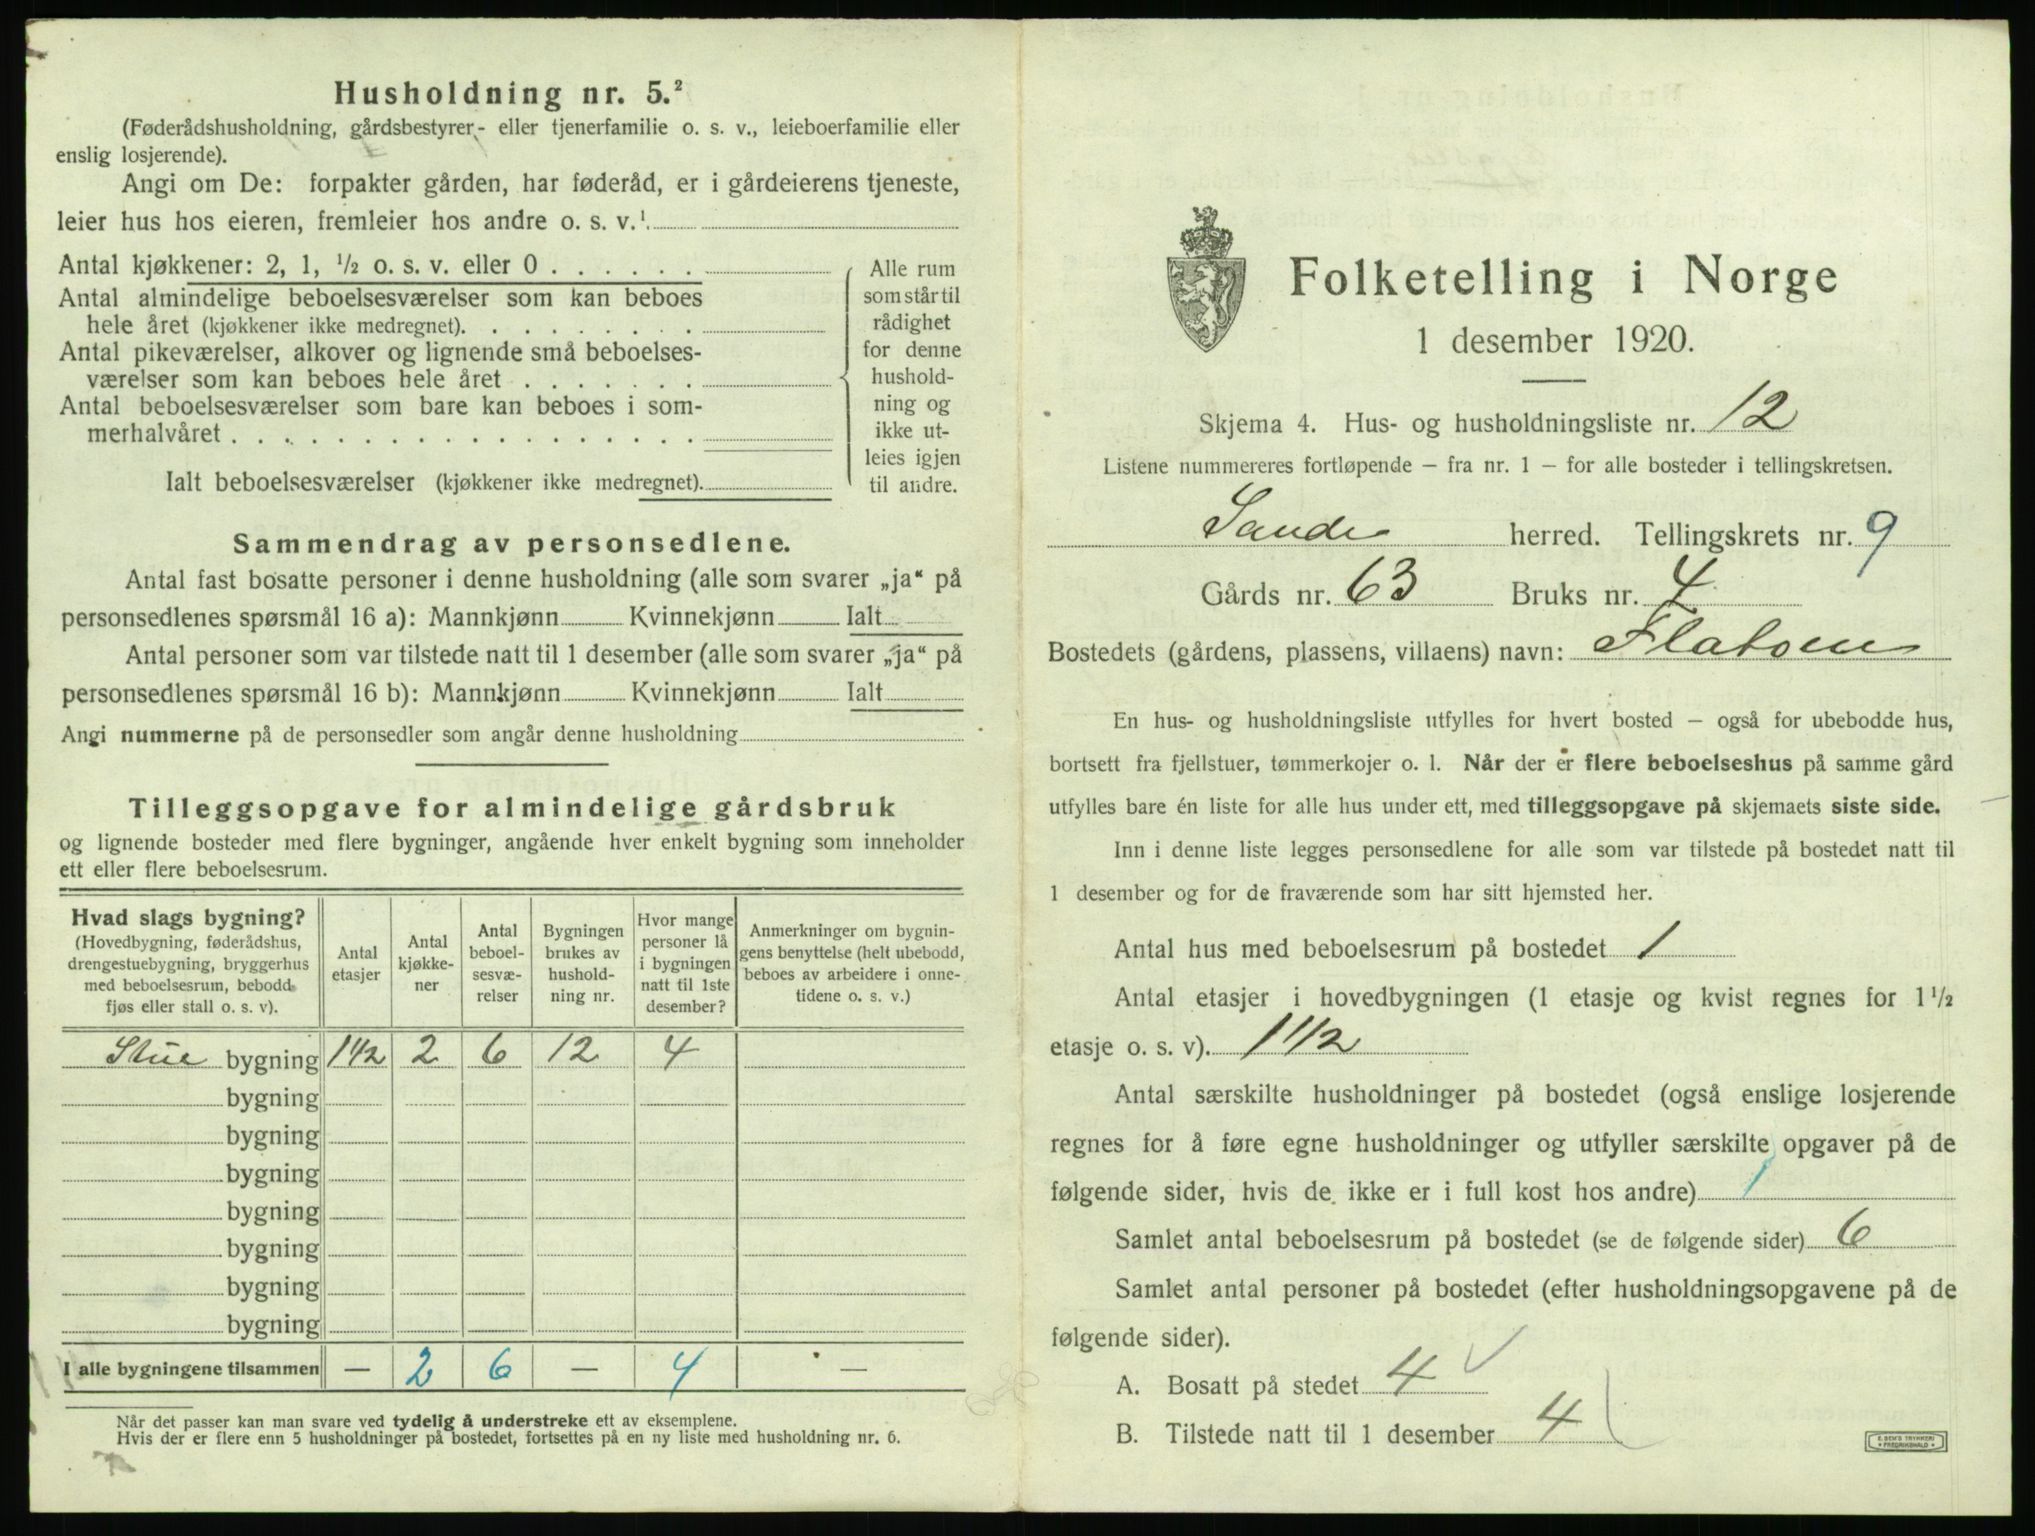 Husholdning nr. 5.²
(Føderådshusholdning, gårdsbestyrer- eller tjenerfamilie o. s. v., leieboerfamilie eller
enslig losjerende).
Angi om De: forpakter gården, har føderåd, er i gårdeierens tjeneste,
leier hus hos eieren, fremleier hos andre o. s. v.¹
Antal kjøkkener: 2, 1, ½ o. s. v. eller 0
Antal almindelige beboelsesværelser som kan beboes
hele året (kjøkkener ikke medregnet).
Antal pikeværelser, alkover og lignende små beboelses-
værelser som kan beboes hele året
Antal beboelsesværelser som bare kan beboes i som-
merhalvåret
Ialt beboelsesværelser (kjøkkener ikke medregnet).
Alle rum
som står til
rådighet
for denne
hushold-
ning og
ikke ut-
leies igjen
til andre.
Sammendrag av personsedlene.
Antal fast bosatte personer i denne husholdning (alle som svarer „ja“ på
personsedlenes spørsmål 16 a): Mannkjønn Kvinnekjønn Ialt
Antal personer som var tilstede natt til 1 desember (alle som svarer „ja“ på
personsedlenes spørsmål 16 b): Mannkjønn Kvinnekjønn Ialt
Angi nummerne på de personsedler som angår denne husholdning
Tilleggsopgave for almindelige gårdsbruk
og lignende bosteder med flere bygninger, angående hver enkelt bygning som inneholder
ett eller flere beboelsesrum.
Hvad slags bygning?
(Hovedbygning, føderådshus,
drengestuebygning, bryggerhus
med beboelsesrum, bebodd
fjøs eller stall o. s. v).
Antal
etasjer
Antal
kjøkke-
ner
Antal
beboel-
sesvæ-
relser
Bygningen
brukes av
hushold-
ning nr.
Hvor mange
personer lå
i bygningen
natt til 1ste
desember?
Anmerkninger om bygnin-
gens benyttelse (helt ubebodd,
beboes av arbeidere i onne-
tidene o. s. v.)
Stue bygning 1 1/2 2 6 12 4
bygning
bygning
bygning
bygning
bygning
bygning
bygning
I alle bygningene tilsammen — 2 6 — 4 —
Når det passer kan man svare ved tydelig å understreke ett av eksemplene.
Hvis der er flere enn 5 husholdninger på bostedet, fortsettes på en ny liste med husholdning nr. 6.
Folketelling i Norge
1 desember 1920.
Skjema 4. Hus- og husholdningsliste nr. 12
Listene nummereres fortløpende – fra nr. 1 – for alle bosteder i tellingskretsen.
Sande herred. Tellingskrets nr. 9
Gårds nr. 63 Bruks nr. 4
Bostedets (gårdens, plassens, villaens) navn:
En hus- og husholdningsliste utfylles for hvert bosted – også for ubebodde hus,
bortsett fra fjellstuer, tømmerkojer o. l. Når der er flere beboelseshus på samme gård
utfylles bare én liste for alle hus under ett, med tilleggsopgave på skjemaets siste side.
Inn i denne liste legges personsedlene for alle som var tilstede på bostedet natt til
1 desember og for de fraværende som har sitt hjemsted her.
Antal hus med beboelsesrum på bostedet 1
Antal etasjer i hovedbygningen (1 etasje og kvist regnes for 1½
etasje o. s. v). 1 1/2
Antal særskilte husholdninger på bostedet (også enslige losjerende
regnes for å føre egne husholdninger og utfyller særskilte opgaver på de
følgende sider, hvis de ikke er i full kost hos andre) 1
Samlet antal beboelsesrum på bostedet (se de følgende sider) 6
Samlet antal personer på bostedet (efter husholdningsopgavene på de
følgende sider).
A. Bosatt på stedet 4
B. Tilstede natt til 1 desember 4
E. SEM'S TRYKKERI
FREDRIKSHALD